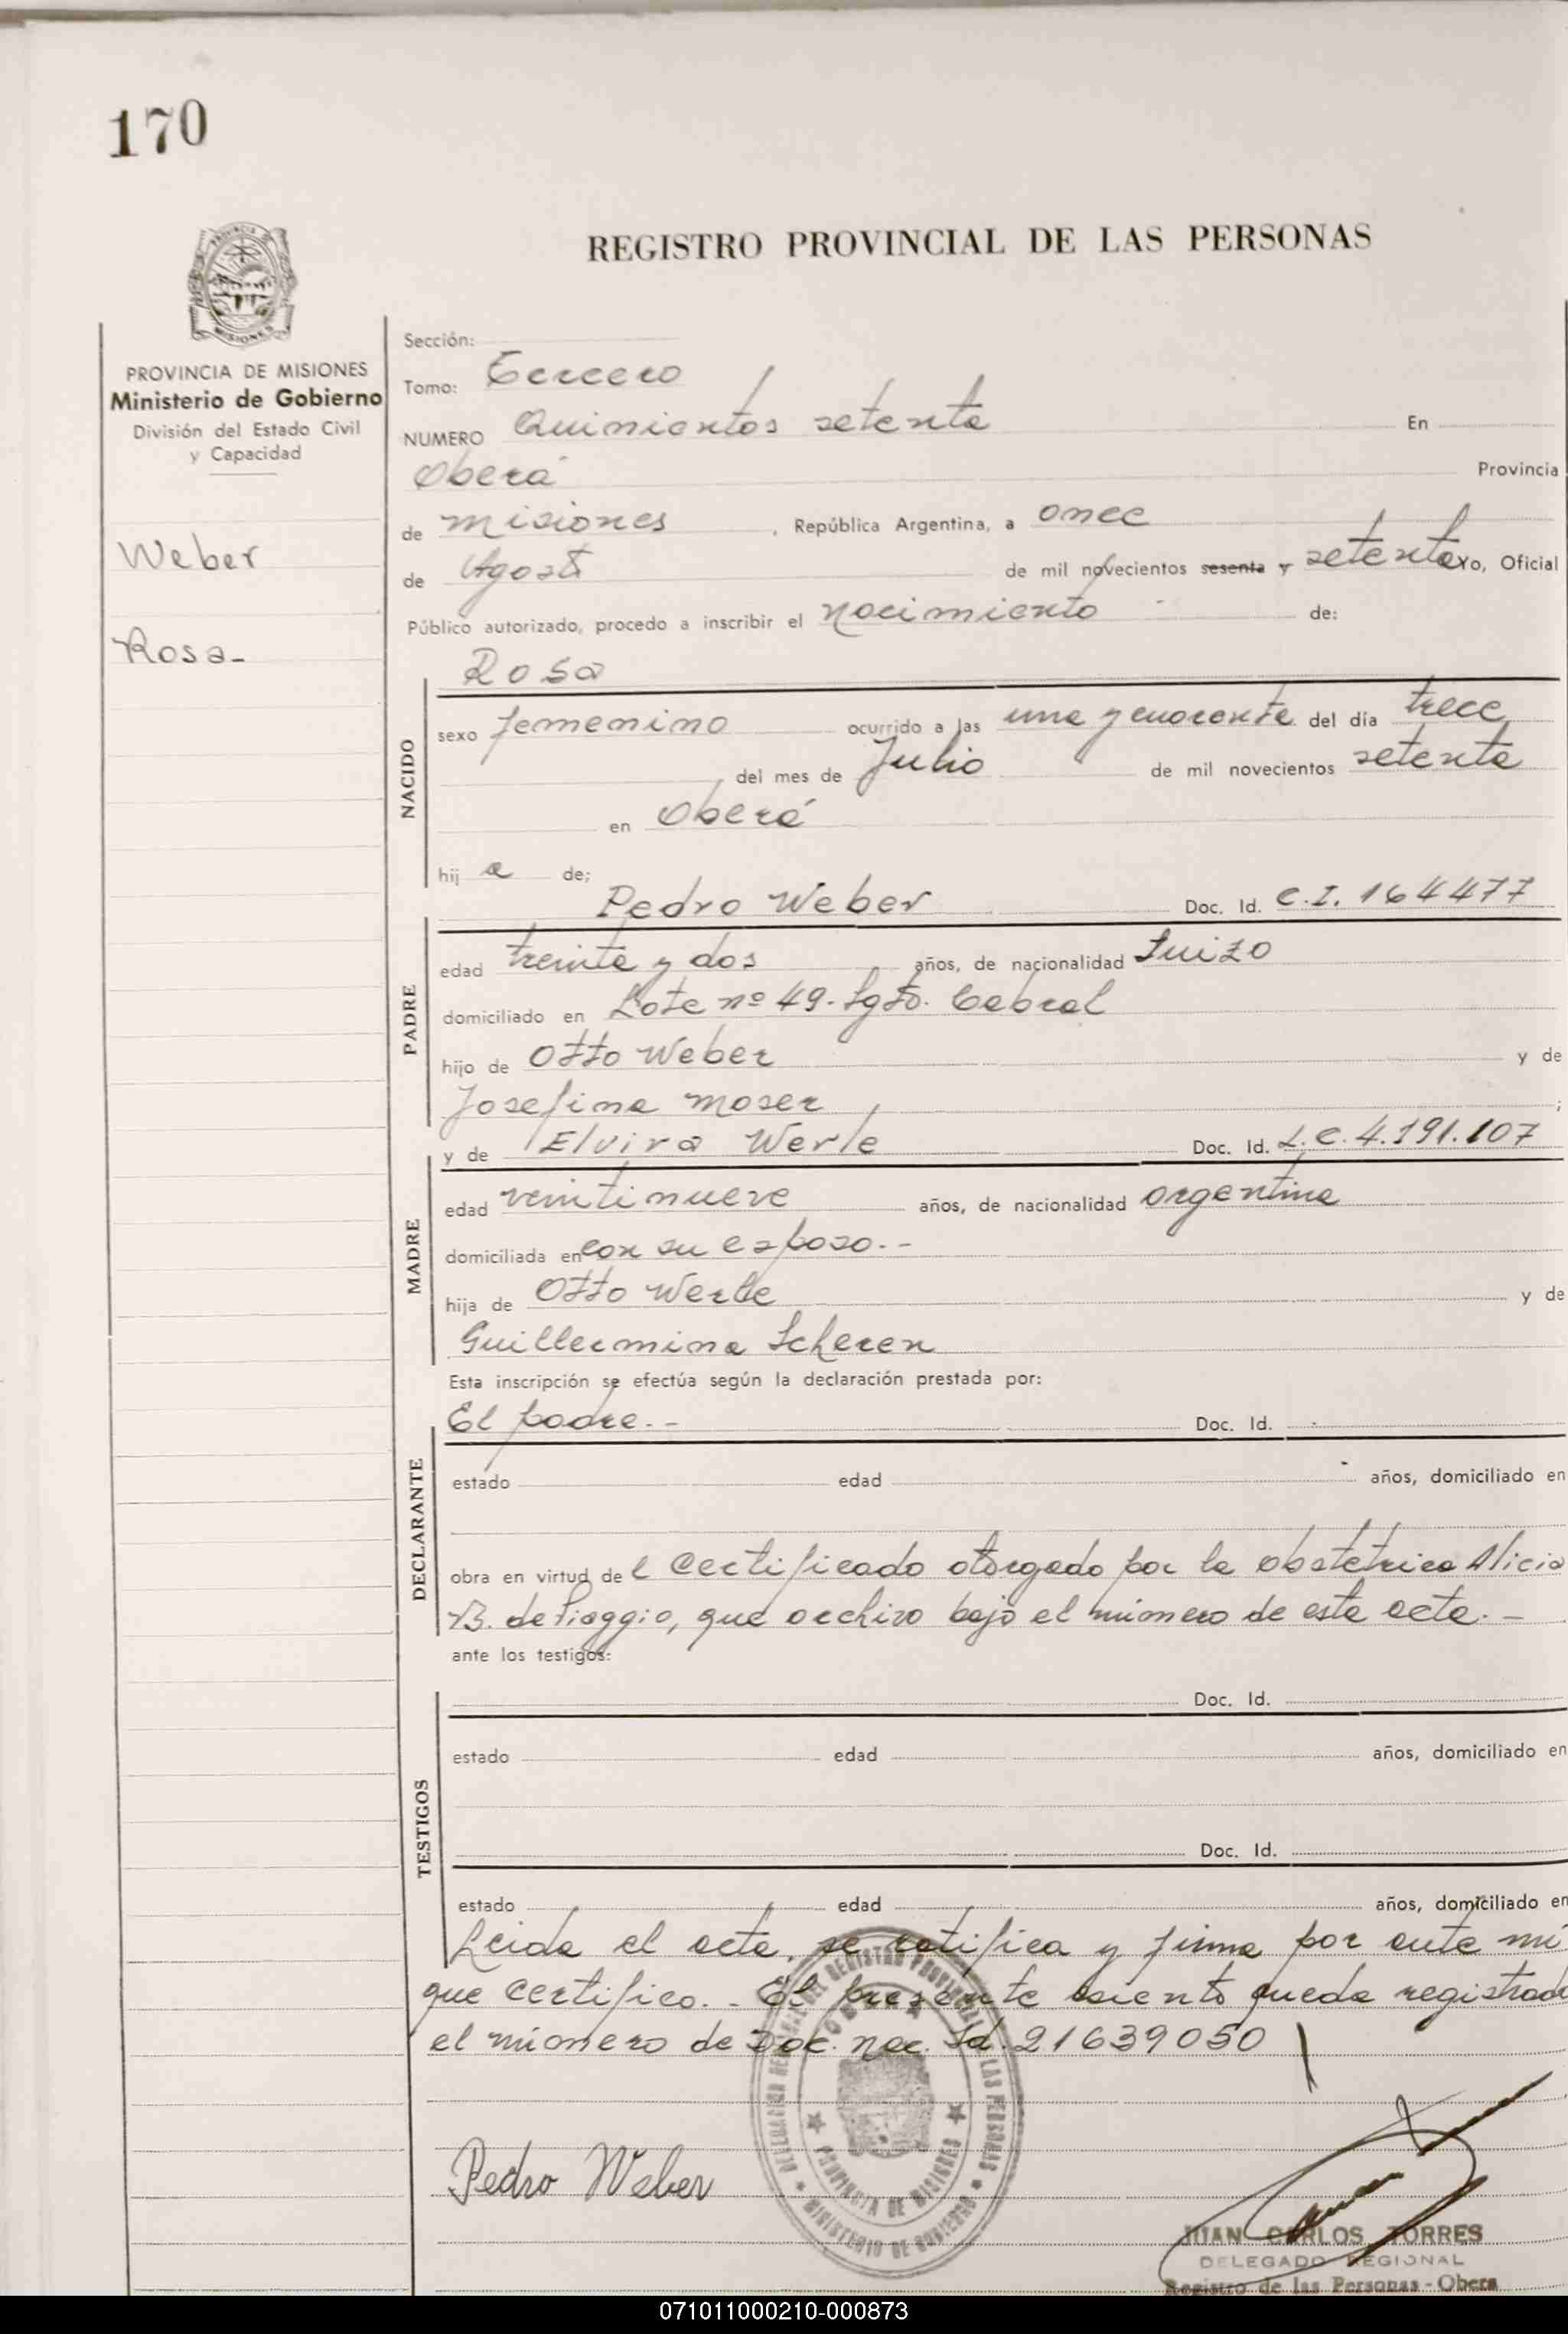 170
REGISTRO PROVINCIAL DE LAS PERSONAS
PROVINCIA DE MISIONES
Ministerio de Gobierno
División del Estado Civil
y Capacidad
Weber
Rosa-
Sección:
Tomo: Tercero
NUMERO Quinientos setenta En
Oberá Provincia
de misiones, República Argentina, a once
de Agosto de mil novecientos sesenta y setenta Yo, Oficial
Público autorizado, procedo a inscribir el nacimiento de:
Rosa
NACIDO
sexo femenino ocurrido a las una y cuarenta del día trece
del mes de Julio de mil novecientos setenta
en Oberá
hij a de;
Pedro Weber Doc. Id. C.I. 164477
PADRE
edad treinta y dos años, de nacionalidad Suizo
domiciliado en Lote nº 49. Sgto. Cabral
hijo de Otto Weber y de
Josefina Moser ;
y de Elvira Werle Doc. Id. L.C. 4.191.107
MADRE
edad veintinueve años, de nacionalidad argentina
domiciliada en con su esposo.-
hija de Otto Werle y de
Guillermina Scheren
Esta inscripción se efectúa según la declaración prestada por:
El padre.- Doc. Id.
DECLARANTE
estado edad años, domiciliado en
obra en virtud de l certificado otorgado por la obstetrica Alicia
B. de Piaggio, que archivo bajo el número de este acta.-
ante los testigos:
Doc. Id.
TESTIGOS
estado edad años, domiciliado en
Doc. Id.
estado edad años, domiciliado en
Leida el acta, se ratifica y firma por ante mi
que certifico.- El presente asiento queda registrado
el número de Doc. nac. Id. 21639050
Pedro Weber
PROVINCIA DE MISIONES
MINISTERIO DE GOBIERNO
JUAN CARLOS TORRES
DELEGADO REGIONAL
Registro de las Personas - Obera
071011000210-000873